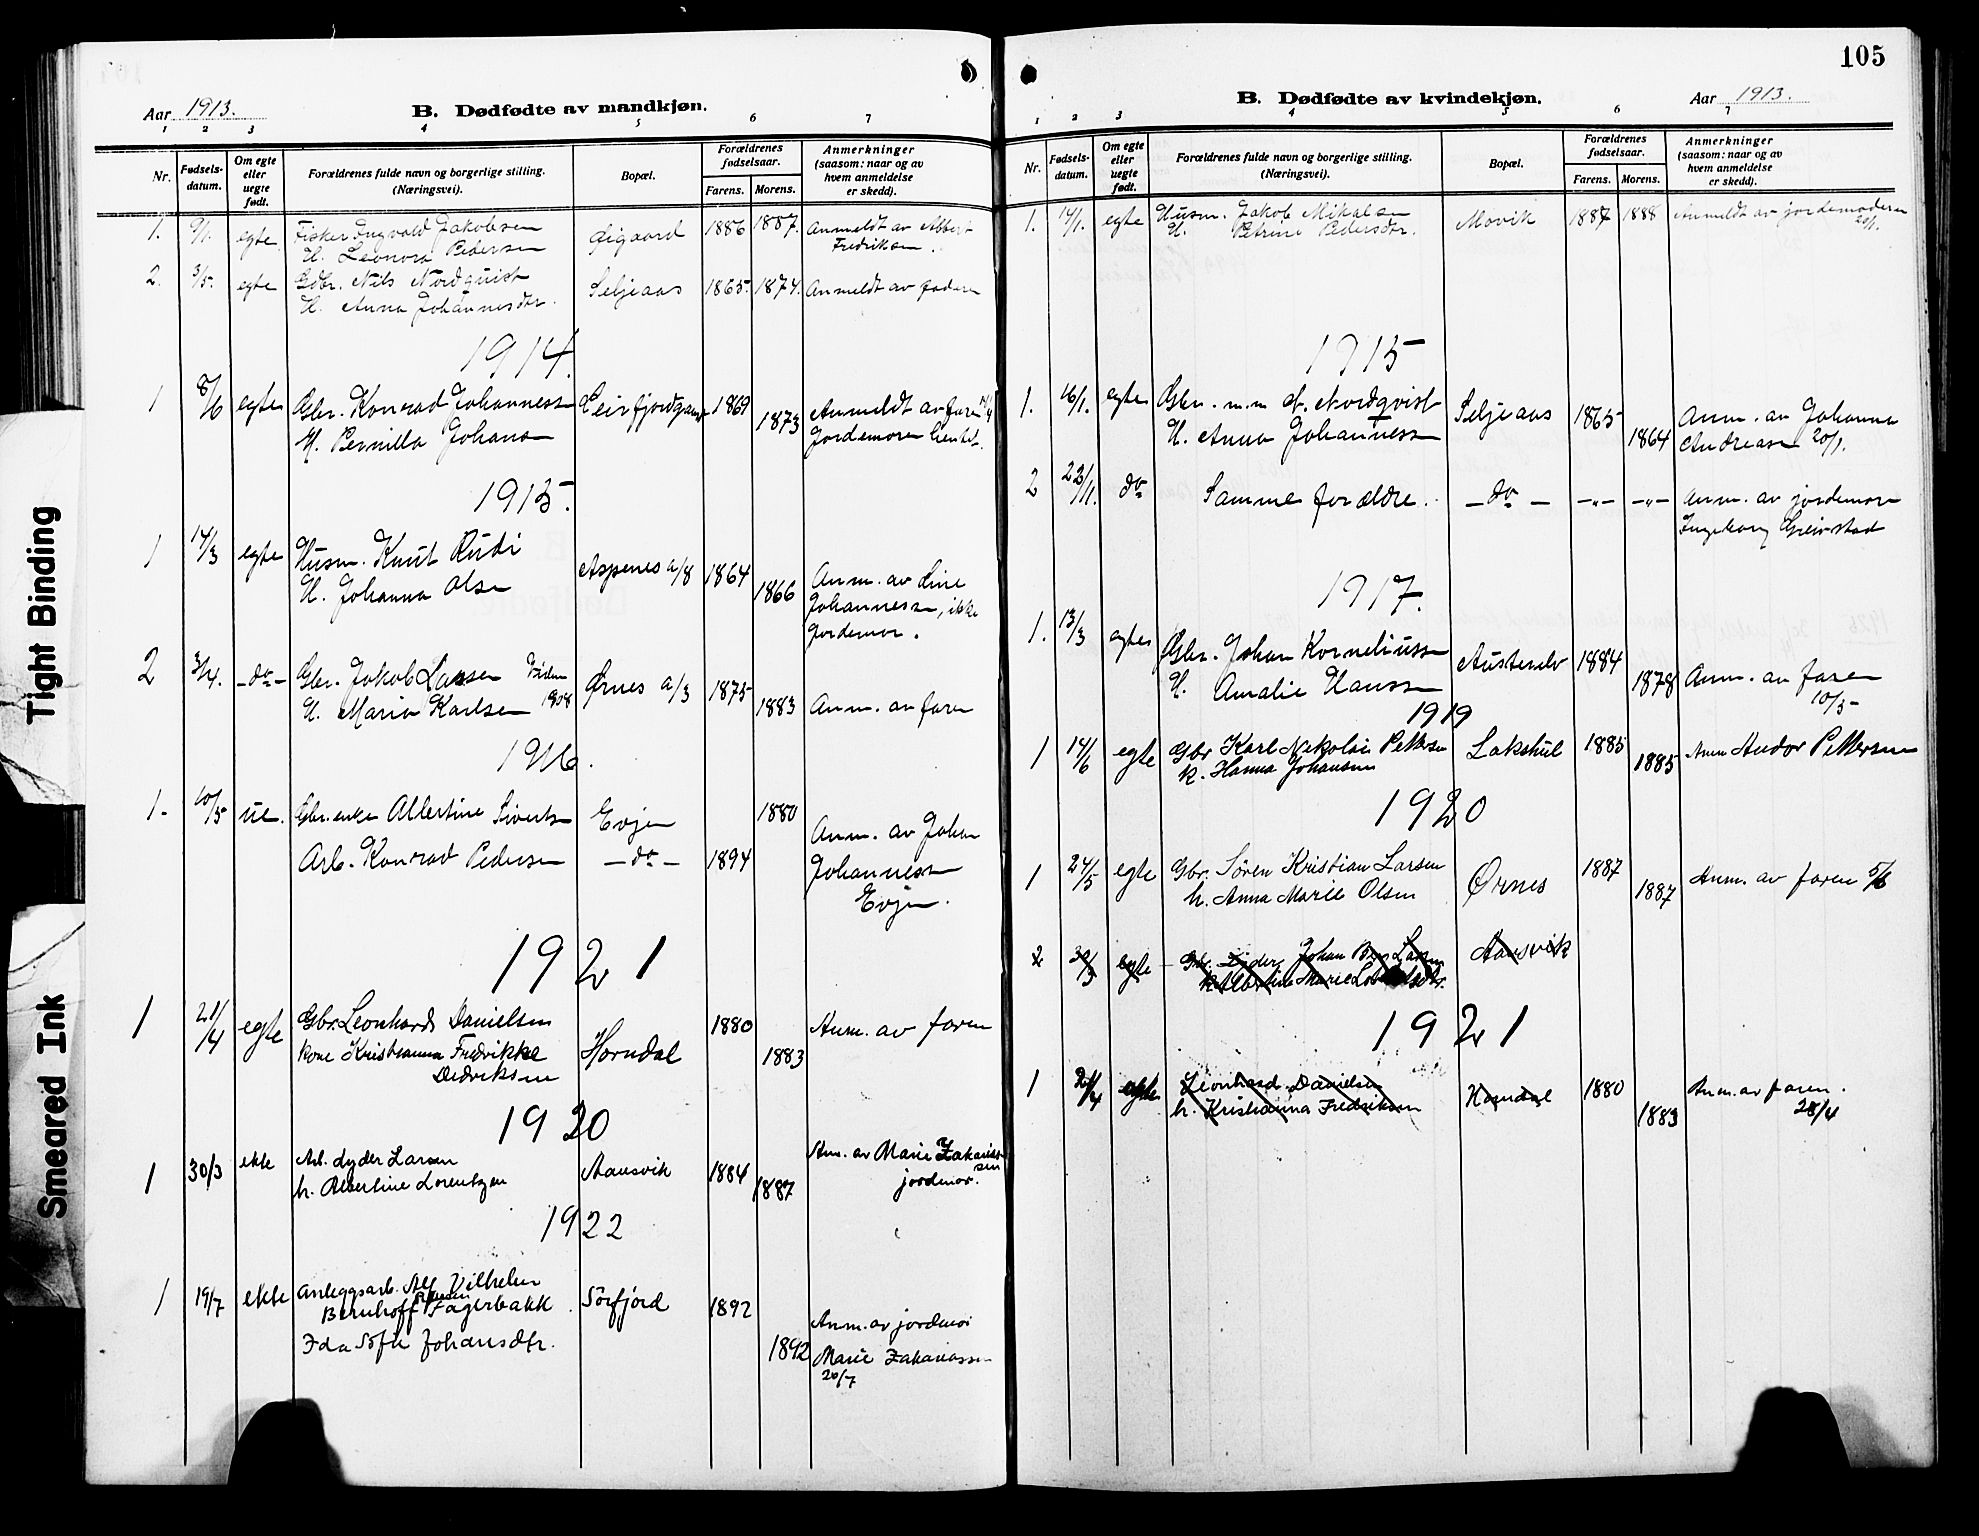 Tight Binding
Smeared Ink
Aar 1913.
B. Dødfødte av mandkjøn.
1 2 3 4 5 6 7
Nr.
Fødsels-
datum.
Om egte
eller
uegte
født.
Forældrenes fulde navn og borgerlige stilling.
(Næringsvei).
Bopæl.
Forældrenes
fødselsaar.
Farens. Morens.
Anmerkninger
(saasom: naar og av
hvem anmeldelse
er skedd).
1. 9/1. egte Fisker Ingvald Jakobsen 1886 1887. Anmeldt av
H. Leonora Pedersen Fredriksen.
2. 3/5. egte Gbr. Nils Nordquist Seljeaas 1865. 1874. Anmeldt av faderen
H. Anna Johannesdtr.
1914.
1 8/6 egte Gbr. Konrad Johannessen 1869 1873 Anmeldt av faren
H. Pernilla Johans Jordemoren hentet.
1915.
1 14/3 egte Husm. Knut Rudi Aspenes a/8 1864 1866 Anm. av Line
H. Johanna Olsen Johannessen, ikke
jordemor.
2 3/4. -do- Gbr. Jakob Larsen Viden Ørnes a/3 1875 1883 Anm. av faren
H. Maria Karlsen 1908
1916.
1. 10/5 ue. Gbr. enke Albertine Sivertsen Evjen 1880 Anm. av Johan
Arb. Konrad Pedersen -do- 1894 Johannessen
Evjen.
1921
1 21/4 egte Gbr. Leonhard Danielsen Horndal 1880 1883 Anm. av faren
kone Kristianna Fredrikke
Didriksen
1920
1 30/3 ekte Arb. Lyder Larsen Aansvik 1884 1887 Anm. av Marie Zakarias-
sen
h. Albertine Lorentzen jordmor.
1922
1 19/7 ekte Anleggsarb. Alf Vilhelm Sörfjord 1892
Bernhoff Fagerbakk
Ida Sofie Johansdtr. 1892 Anm. av jordmor
Marie Zakariassen
20/7
105
B. Dødfødte av kvindekjøn.
Aar 1913.
1 2 3 4 5 6 7
Nr.
Fødsels-
datum.
Om egte
eller
uegte
født.
Forældrenes fulde navn og borgerlige stilling.
(Næringsvei).
Bopæl.
Forældrenes
fødselsaar.
Farens. Morens.
Anmerkninger
(saasom: naar og av
hvem anmeldelse
er skedd).
1. 14/1. egte Husm. Jakob Mikalsen Movik 1887 1888 Anmeldt av jordemoderen
H. Petrine Pedersdtr. 20/1.
1915
1. 16/1. egte Gbr. m.m. N. Nordqvist Seljeaas 1865 1864 Anm. av Johanna
H. Anna Johannessen Andreasen 20/1.
2 22/11. do Samme forældre. -do- -"- -"- Anm. av jordemor
Ingeborg Greivstad
1917.
1. 13/3 egte Gbr. Johan Korneliussen Austerelv 1884 1878 Anm. av faren
H. Amalie Hanssen 10/5
1919
1 14/6 egte Gbr Karl Nikolai Pettersen Lakshul 1885 1885 Anm Andor Pettersen
k. Hanna Johansen
1920
1 24/5 egte Gbr. Sören Kristian Larsen Ørnes 1887 1887 Anm. av faren 5/6
h. Anna Marie Olsen
2 30/3 egte Gbr. Lyder Johan Larsen Aansvik
h. Albertine Marie
1921
1 21/4 egte Leonhard Danielsen Horndal 1880 1883 Anm. av faren.
h. Kristianna Fredriksen 28/4